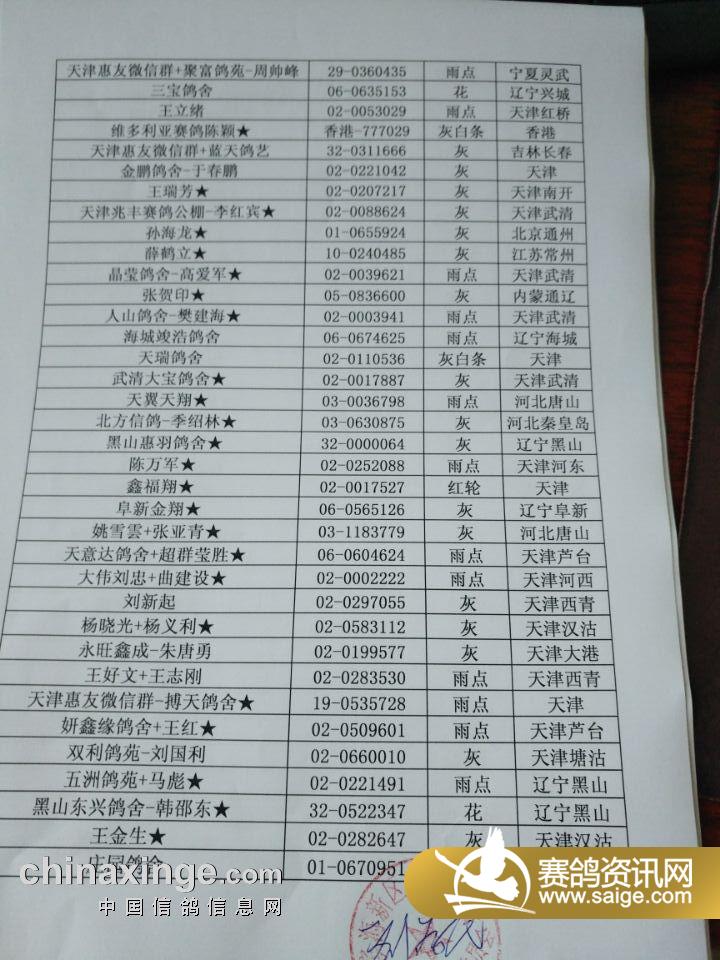 天津惠友微信群+聚富鸽苑-周帅峰 29-0360435 雨点 宁夏灵武
三宝鸽舍 06-0635153 花 辽宁兴城
王立绪 02-0053029 雨点 天津红桥
维多利亚赛鸽陈颖★ 香港-777029 灰白条 香港
天津惠友微信群+蓝天鸽艺 32-0311666 灰 吉林长春
金鹏鸽舍-于春鹏 02-0221042 灰 天津
王瑞芳★ 02-0207217 灰 天津南开
天津兆丰赛鸽公棚-李红宾★ 02-0088624 灰 天津武清
孙海龙★ 01-0655924 灰 北京通州
薛鹤立★ 10-0240485 灰 江苏常州
晶莹鸽舍-高爱军★ 02-0039621 雨点 天津武清
张贺印★ 05-0836600 灰 内蒙通辽
人山鸽舍-樊建海★ 02-0003941 雨点 天津武清
海城竣浩鸽舍 06-0674625 雨点 辽宁海城
天瑞鸽舍 02-0110536 灰白条 天津
武清大宝鸽舍★ 02-0017887 灰 天津武清
天翼天翔★ 03-0036798 雨点 河北唐山
北方信鸽-季绍林★ 03-0630875 灰 河北秦皇岛
黑山惠羽鸽舍★ 32-0000064 灰 辽宁黑山
陈万军★ 02-0252088 雨点 天津河东
鑫福翔★ 02-0017527 红轮 天津
阜新金翔★ 06-0565126 灰 辽宁阜新
姚雪雲+张亚青★ 03-1183779 灰 河北唐山
天意达鸽舍+超群莹胜★ 06-0604624 雨点 天津芦台
大伟刘忠+曲建设★ 02-0002222 雨点 天津河西
刘新起 02-0297055 灰 天津西青
杨晓光+杨义利★ 02-0583112 灰 天津汉沽
永旺鑫成-朱唐勇 02-0199577 灰 天津大港
王好文+王志刚 02-0283530 雨点 天津西青
天津惠友微信群-搏天鸽舍★ 19-0535728 雨点 天津
妍鑫缘鸽舍+王红★ 02-0509601 雨点 天津芦台
双利鸽苑-刘国利 02-0660010 灰 天津塘沽
五洲鸽苑+马彪★ 02-0221491 雨点 辽宁黑山
黑山东兴鸽舍-韩邵东★ 32-0522347 花 辽宁黑山
王金生★ 02-0282647 灰 天津汉沽
01-0670951
chinaxinge.com
中国信鸽信息网
赛鸽资讯网
www.saige.com